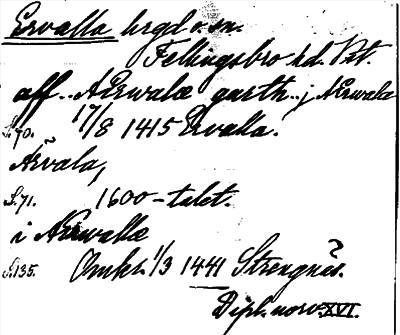 Ervalla hrgd o. sn.
Fellingsbro hd. Vstl.
aff .. Ærwalæ garth .. j Ærwala
S. 70. 17/8 1415 Ervalla.
Ärvala,
S. 71. 1600-talet.
i Ærwallæ
S. 135. Omkr. 1/3 1441 Strengnäs.
Dipl. norv. XVI.